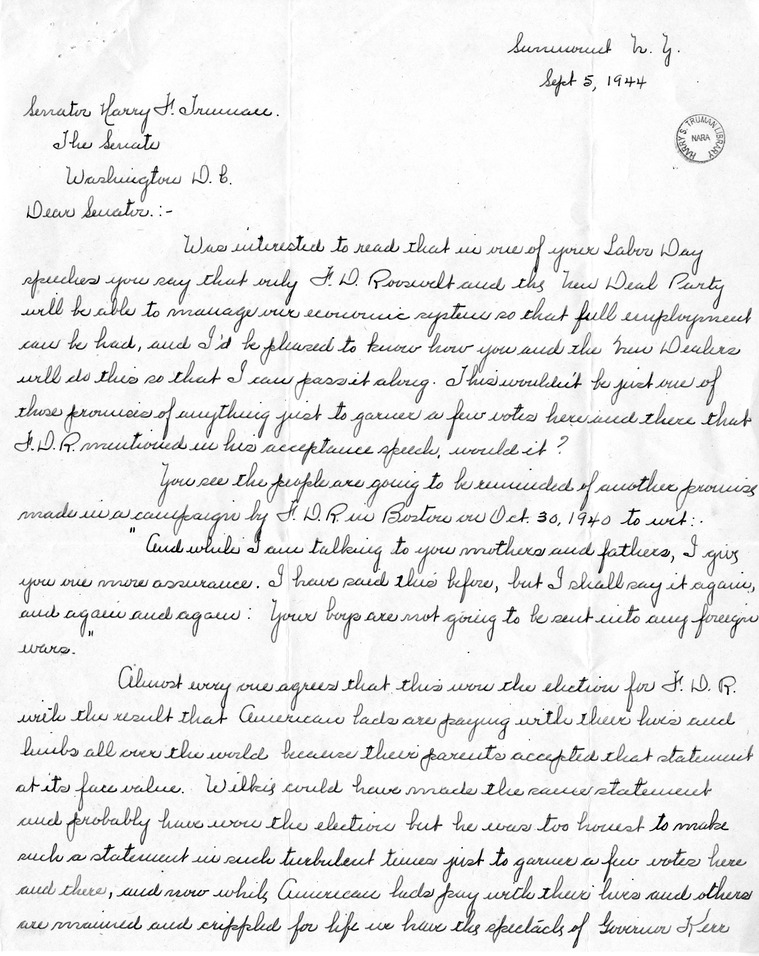 Sunmount N. Y.
Sept 5, 1944
Senator Harry F. Truman.
The Senate
Washington D. C.
Dear Senator.:-
HARRY S. TRUMAN LIBRARY
NARA
Was interested to read that in one of your Labor Day
speeches you say that only F. D. Roosevelt and the New Deal Party
will be able to manage our economic system so that full employment
can be had, and I'd be pleased to know how you and the New Dealers
will do this so that I can pass it along. This wouldn't be just one of
those promises of anything just to garner a few votes here and there that
F.D.R. mentioned in his acceptance speech, would it?
You see the people are going to be reminded of another promise
made in a campaign by F. D. R. in Boston on Oct. 30, 1940 to wit:.
"And while I am talking to you mothers and fathers, I give
you one more assurance. I have said this before, but I shall say it again,
and again and again: Your boys are not going to be sent into any foreign
wars."
Almost every one agrees that this won the election for F. D. R.
with the result that American lads are paying with their lives and
limbs all over the world because their parents accepted that statement
at its face value. Wilkie could have made the same statement
and probably have won the election but he was too honest to make
such a statement in such turbulent times just to garner a few votes here
and there, and now while American lads pay with their lives and others
are maimed and crippled for life we have the spectacle of Governor Kerr